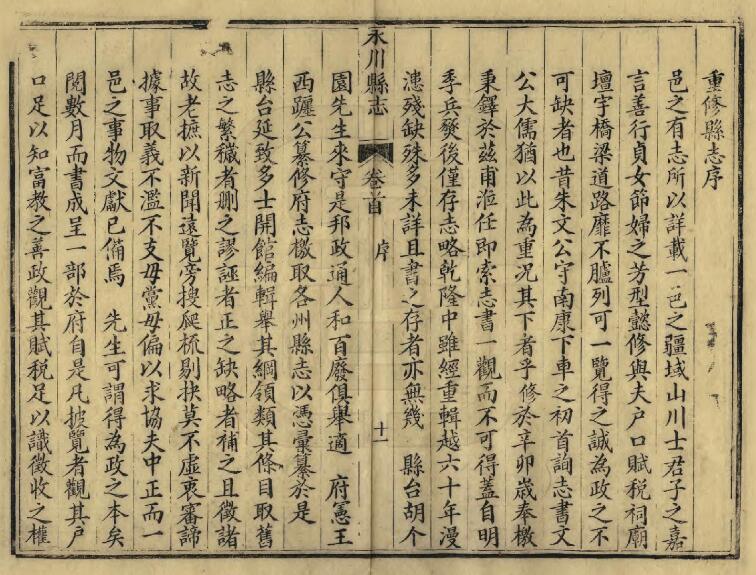 重修縣志序
邑之有志所以詳載一邑之疆域山川士君子之嘉
言善行貞女節婦之芳型懿修與夫户口賦税祠廟
壇宇橋梁道路靡不臚列可一覽得之誠為政之不
可缺者也昔朱文公守南康下車之初首詢志書文
公大儒猶以此為重况其下者乎修於辛卯歲奉檄
秉鐸於兹甫涖任即索志書一觀而不可得蓋自明
季兵燹後僅存志略乾隆中雖經重輯越六十年漫
漶殘缺殊多未詳且書之存者亦無幾 縣台胡个
永川縣志 卷首 序 十一
園先生來守是邦政通人和百廢俱舉適 府憲王
西躔公纂修府志檄取各州縣志以憑彙纂於是
縣台延致多士開館編輯舉其綱領類其條目取舊
志之繁穢者删之謬誣者正之缺略者補之且徵諸
故老摭以新聞遠覽旁搜爬梳剔抉莫不虚衷審諦
據事取義不濫不支毋黨毋偏以求協夫中正而一
邑之事物文獻已備焉 先生可謂得為政之本矣
閱數月而書成呈一部於府自是凡披覽者觀其户
口足以知富教之善政觀其賦税足以識徵收之權